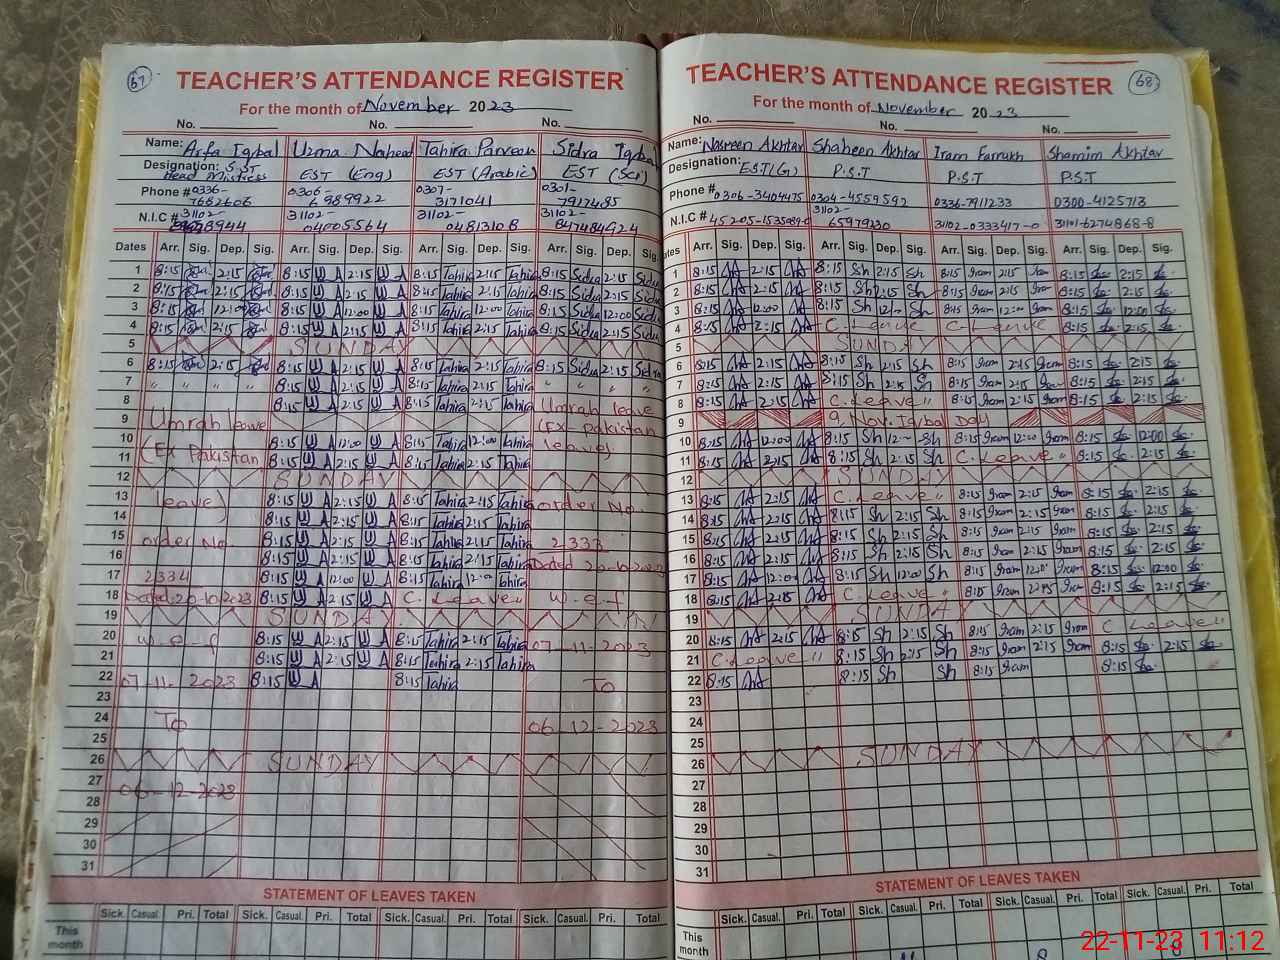 67
TEACHER'S ATTENDANCE REGISTER
For the month of November 2023
No. No. No.
Name: Arfa Iqbal Uzma Naheed Tahira Parveen Sidra Iqbal
Designation: S.ST Head Mistress EST (Eng) EST (Arabic) EST (Sci)
Phone # 0336-7662606 0306-6989922 0307-3171041 0301-7917485
N.I.C # 31102- 31102-04005564 31102-04813108 31102-847484924
Dates Arr. Sig. Dep. Sig. Arr. Sig. Dep. Sig. Arr. Sig. Dep. Sig. Arr. Sig. Dep. Sig.
1 8:15 2:15 8:15 UA 2:15 UA 8:15 Tahira 2:15 Tahira 8:15 Sidra 2:15 Sidra
2 8:15 2:15 8:15 UA 2:15 UA 8:15 Tahira 2:15 Tahira 8:15 Sidra 2:15 Sidra
3 8:15 12:00 8:15 UA 12:00 UA 8:15 Tahira 12:00 Tahira 8:15 Sidra 12:00 Sidra
4 8:15 2:15 8:15 UA 2:15 UA 8:15 Tahira 2:15 Tahira 8:15 Sidra 2:15 Sidra
5 SUNDAY
6 8:15 2:15 8:15 UA 2:15 UA 8:15 Tahira 2:15 Tahira 8:15 Sidra 2:15 Sidra
7 " " " " 8:15 UA 2:15 UA 8:15 Tahira 2:15 Tahira " " " "
8 8:15 UA 2:15 UA 8:15 Tahira 2:15 Tahira Umrah leave
9 Umrah leave (Ex-Pakistan
10 8:15 UA 12:00 UA 8:15 Tahira 12:00 Tahira leave)
11 (Ex Pakistan 8:15 UA 2:15 UA 8:15 Tahira 2:15 Tahira
12 SUNDAY
13 leave) 8:15 UA 2:15 UA 8:15 Tahira 2:15 Tahira order No.
14 8:15 UA 2:15 UA 8:15 Tahira 2:15 Tahira
15 order No 8:15 UA 2:15 UA 8:15 Tahira 2:15 Tahira 2333
16 8:15 UA 2:15 UA 8:15 Tahira 2:15 Tahira Dated 20-10-2023
17 2334 8:15 UA 12:00 UA 8:15 Tahira 12:00 Tahira
18 Dated:20-10-2023 8:15 UA 2:15 UA C. Leave " w.e.f
19 SUNDAY
20 w.e.f 8:15 UA 2:15 UA 8:15 Tahira 2:15 Tahira 07-11-2023
21 8:15 UA 2:15 UA 8:15 Tahira 2:15 Tahira
22 07-11-2023 8:15 UA 8:15 Tahira To
23
24 To 06-12-2023
25
26 SUNDAY
27
28 06-12-2023
29
30
31
STATEMENT OF LEAVES TAKEN
Sick. Casual. Pri. Total Sick. Casual. Pri. Total Sick. Casual. Pri. Total Sick. Casual. Pri. Total
This month
68
TEACHER'S ATTENDANCE REGISTER
For the month of November 2023
No. No. No.
Name: Nasreen Akhtar Shaheen Akhtar Iram Farrukh Shamim Akhtar
Designation: EST(G) P.S.T P.S.T P.S.T
Phone # 0306-3404475 0304-4559592 0336-7911233 0300-4125713
N.I.C # 31102-65979230 31102-0333417-0 31101-6274868-8
Dates Arr. Sig. Dep. Sig. Arr. Sig. Dep. Sig. Arr. Sig. Dep. Sig. Arr. Sig. Dep. Sig.
1 8:15 2:15 8:15 Sh 2:15 Sh 8:15 Iram 2:15 Iram 8:15 2:15
2 8:15 2:15 8:15 Sh 2:15 Sh 8:15 Iram 2:15 Iram 8:15 2:15
3 8:15 12:00 8:15 Sh 12:- Sh 8:15 Iram 12:00 Iram 8:15 12:00
4 8:15 2:15 C. Leave C. Leave 8:15 2:15
5 SUNDAY
6 8:15 2:15 8:15 Sh 2:15 Sh 8:15 Iram 2:15 Iram 8:15 2:15
7 8:15 2:15 8:15 Sh 2:15 Sh 8:15 Iram 2:15 Iram 8:15 2:15
8 8:15 2:15 C. Leave " 8:15 Iram 2:15 Iram 8:15 2:15
9 9 Nov. Iqbal Day
10 8:15 12:00 8:15 Sh 12:- Sh 8:15 Iram 12:00 Iram 8:15 12:00
11 8:15 2:15 8:15 Sh 2:15 Sh C. Leave " 8:15 2:15
12 SUNDAY
13 8:15 2:15 C. Leave " 8:15 Iram 2:15 Iram 8:15 2:15
14 8:15 2:15 8:15 Sh 2:15 Sh 8:15 Iram 2:15 Iram 8:15 2:15
15 8:15 2:15 8:15 Sh 2:15 Sh 8:15 Iram 2:15 Iram 8:15 2:15
16 8:15 2:15 8:15 Sh 2:15 Sh 8:15 Iram 2:15 Iram 8:15 2:15
17 8:15 12:00 8:15 Sh 12:00 Sh 8:15 Iram Iram 8:15 12:00
18 8:15 2:15 C. Leave " 8:15 Iram 2:15 Iram 8:15 2:15
19 SUNDAY
20 8:15 2:15 8:15 Sh 2:15 Sh 8:15 Iram 2:15 Iram C Leave "
21 C. Leave " 8:15 Sh 2:15 Sh 8:15 Iram 2:15 Iram 8:15 2:15
22 8:15 8:15 Sh 8:15 Iram 8:15
23
24
25
26 SUNDAY
27
28
29
30
31
STATEMENT OF LEAVES TAKEN
Sick. Casual. Pri. Total Sick. Casual. Pri. Total Sick. Casual. Pri. Total Sick. Casual. Pri. Total
This month
22-11-23 11:12